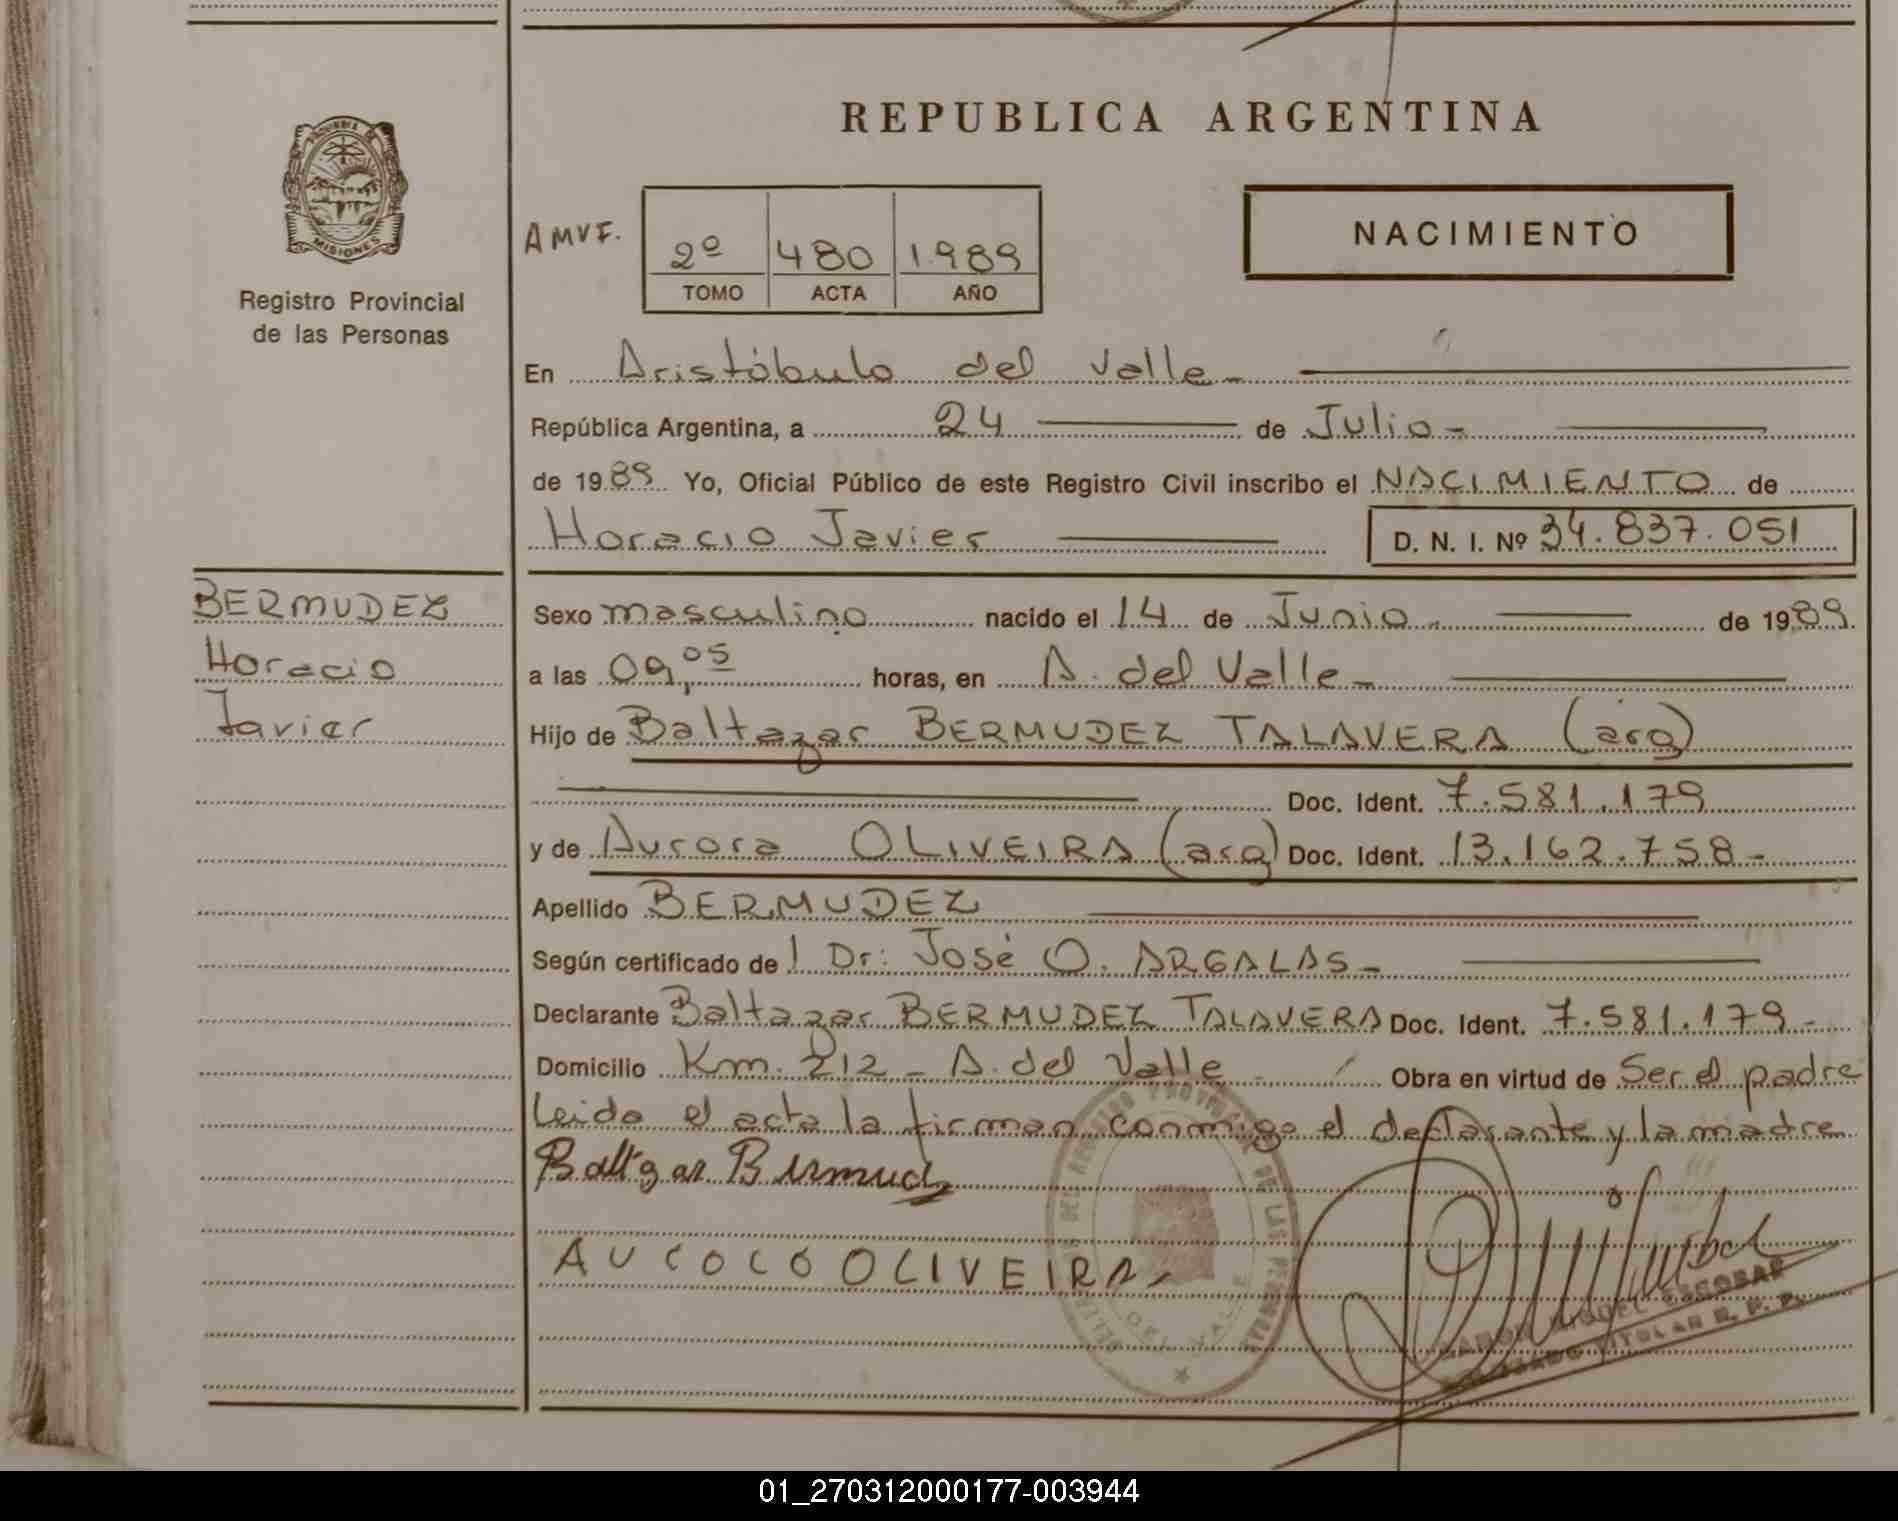 REPUBLICA ARGENTINA
MISIONES
Registro Provincial
de las Personas
AMVF.
2º 480 1.989
TOMO ACTA AÑO
NACIMIENTO
En Aristóbulo del Valle-
República Argentina, a 24 de Julio-
de 1989 Yo, Oficial Público de este Registro Civil inscribo el NACIMIENTO de
Horacio Javier D. N. I. Nº 34.837.051
BERMUDEZ
Horacio
Javier
Sexo masculino nacido el 14 de Junio- de 1989
a las 09,05 horas, en A. del Valle-
Hijo de Baltazar BERMUDEZ TALAVERA (arg)
Doc. Ident. 7.581.179
y de Aurora OLIVEIRA (arg) Doc. Ident. 13.162.758-
Apellido BERMUDEZ
Según certificado de l Dr: José O. ARGALAS-
Declarante Baltazar BERMUDEZ TALAVERA Doc. Ident. 7.581.179-
Domicilio Km. 212 - A. del Valle Obra en virtud de Ser el padre
Leida el acta la firman conmigo el declarante y la madre
Baltgar Bermud
AUCOCO OLIVEIRA
DEL VALLE
RAMON MIGUEL ESCOBAR
TITULAR R. P. P.
01_270312000177-003944